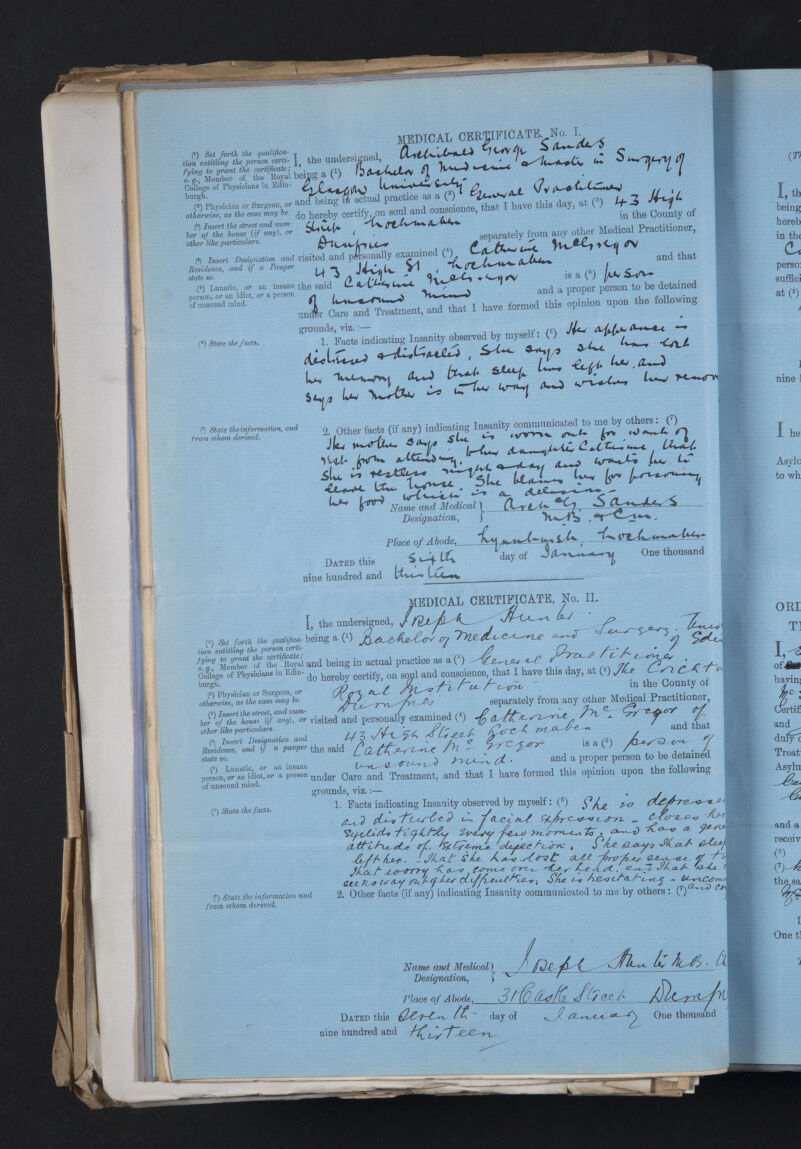 MEDICAL CERTIFICATE, No. I.
(¹) Set forth the qualifica-
tion entitling the person certi-
fying to grant the certificate;
e.g., Member of the Royal
College of Physicians in Edin-
burgh.
(²) Physician or Surgeon, or
otherwise, as the case may be.
(³) Insert the street and num-
ber of the house (if any), or
other like particulars.
(⁴) Insert Designation and
Residence, and if a Pauper
state so.
(⁵) Lunatic, or an insane
person, or an idiot, or a person
of unsound mind.
(⁶) State the facts.
(⁷) State the information, and
from whom derived.
I, the undersigned, Archibald George Sanders
being a (¹) Bachelor of Medicine & Master in Surgery of
Glasgow University
and being in actual practice as a (²) General Practitioner
do hereby certify, on soul and conscience, that I have this day, at (³) 43 High
Street, Lochmaben in the County of
Dumfries separately from any other Medical Practitioner,
visited and personally examined (⁴) Catherine McGregor
43 High St, Lochmaben and that
the said Catherine McGregor is a (⁵) person
of unsound mind and a proper person to be detained
under Care and Treatment, and that I have formed this opinion upon the following
grounds, viz.:—
1. Facts indicating Insanity observed by myself: (⁶) Her appearance is
distressed & distracted, She says she has lost
her memory and that sleep has left her, and
says her mother is in her way and wishes her
2. Other facts (if any) indicating Insanity communicated to me by others: (⁷)
The mother says she is worn out for want of
rest from attending to her daughter Catherine that
She is restless night & day and wants her to
leave the house. She blames her for poisoning
her food which is a delusion
Name and Medical Designation, Arch G. Sanders
M.B. & C.M.
Place of Abode, Lochmaben
DATED this Sixth day of January One thousand
nine hundred and thirteen
MEDICAL CERTIFICATE, No. II.
(¹) Set forth the qualifica-
tion entitling the person certi-
fying to grant the certificate;
e.g., Member of the Royal
College of Physicians in Edin-
burgh.
(²) Physician or Surgeon, or
otherwise, as the case may be.
(³) Insert the street, and num-
ber of the house (if any), or
other like particulars.
(⁴) Insert Designation and
Residence, and if a pauper
state so.
(⁵) Lunatic, or an insane
person, or an idiot, or a person
of unsound mind.
(⁶) State the facts.
(⁷) State the information and
from whom derived.
I, the undersigned, Joseph Hunter
being a (¹) Bachelor of Medicine and Surgery. Univ
of Edin
and being in actual practice as a (²) General Practitioner
do hereby certify, on soul and conscience, that I have this day, at (³) The Crichton
Royal Institution in the County of
Dumfries separately from any other Medical Practitioner,
visited and personally examined (⁴) Catherine McGregor of
43 High Street Lochmaben and that
the said Catherine McGregor is a (⁵) person of
unsound mind. and a proper person to be detained
under Care and Treatment, and that I have formed this opinion upon the following
grounds, viz.:—
1. Facts indicating Insanity observed by myself: (⁶) She is depressed
and disturbed in facial expression - closes her
eyelids tightly every few moments. and has a
attitude of extreme dejection. She says that sleep
left her. - That she has lost all proper sense of
That worry has come over her head, and That she
sees no way out of her difficulties, She is hesitating -
2. Other facts (if any) indicating Insanity communicated to me by others: (⁷) and
Name and Medical Designation, Joseph Hunter M.B.
Place of Abode, 31 Castle Street Dumfries
DATED this Seventh day of January One thousand
nine hundred and thirteen
I, th
being
hereb
in the
perso
suffici
at (³)
nine
I he
Asylu
to wh
ORD
I,
of
having
Certif
and
duly
Treat
Asylu
and a
receiv
(⁶)
(⁷)
the sa
One th